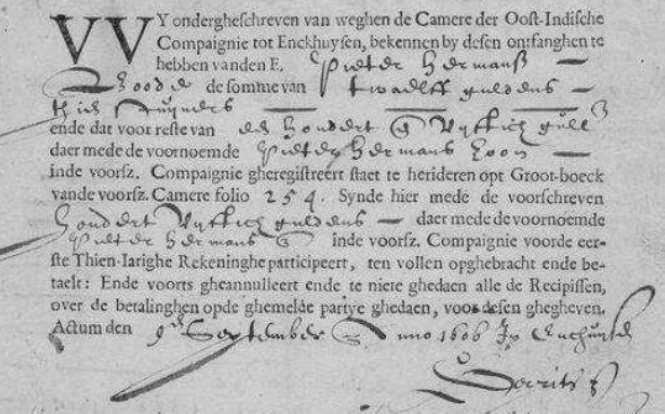 VVY ondergheschreven van weghen de Camere der Oost-Indische
Compaignie tot Enckhuysen, bekennen by desen ontfanghen te
hebben vanden E. Pieter Hermansz
de somme van twaelff guldens
thien stuyvers
ende dat voor reste van hondert Vyftich gull
daer mede de voornoemde Pieter Hermans
inde voorsz. Compaignie gheregistreert staet te herideren opt Groot-boeck
vande voorsz. Camere folio 254. Synde hier mede de voorschreven
hondert Vyftich guldens daer mede de voornoemde
Pieter Hermans inde voorsz. Compaignie voorde eer-
ste Thien-Iarighe Rekeninghe participeert, ten vollen opghebracht ende be-
taelt: Ende voorts gheannulleert ende te niete ghedaen alle de Recipissen,
over de betalinghen opde ghemelde partye ghedaen, voor desen ghegheven.
Actum den 9 September Anno 1606 In Enchuysen